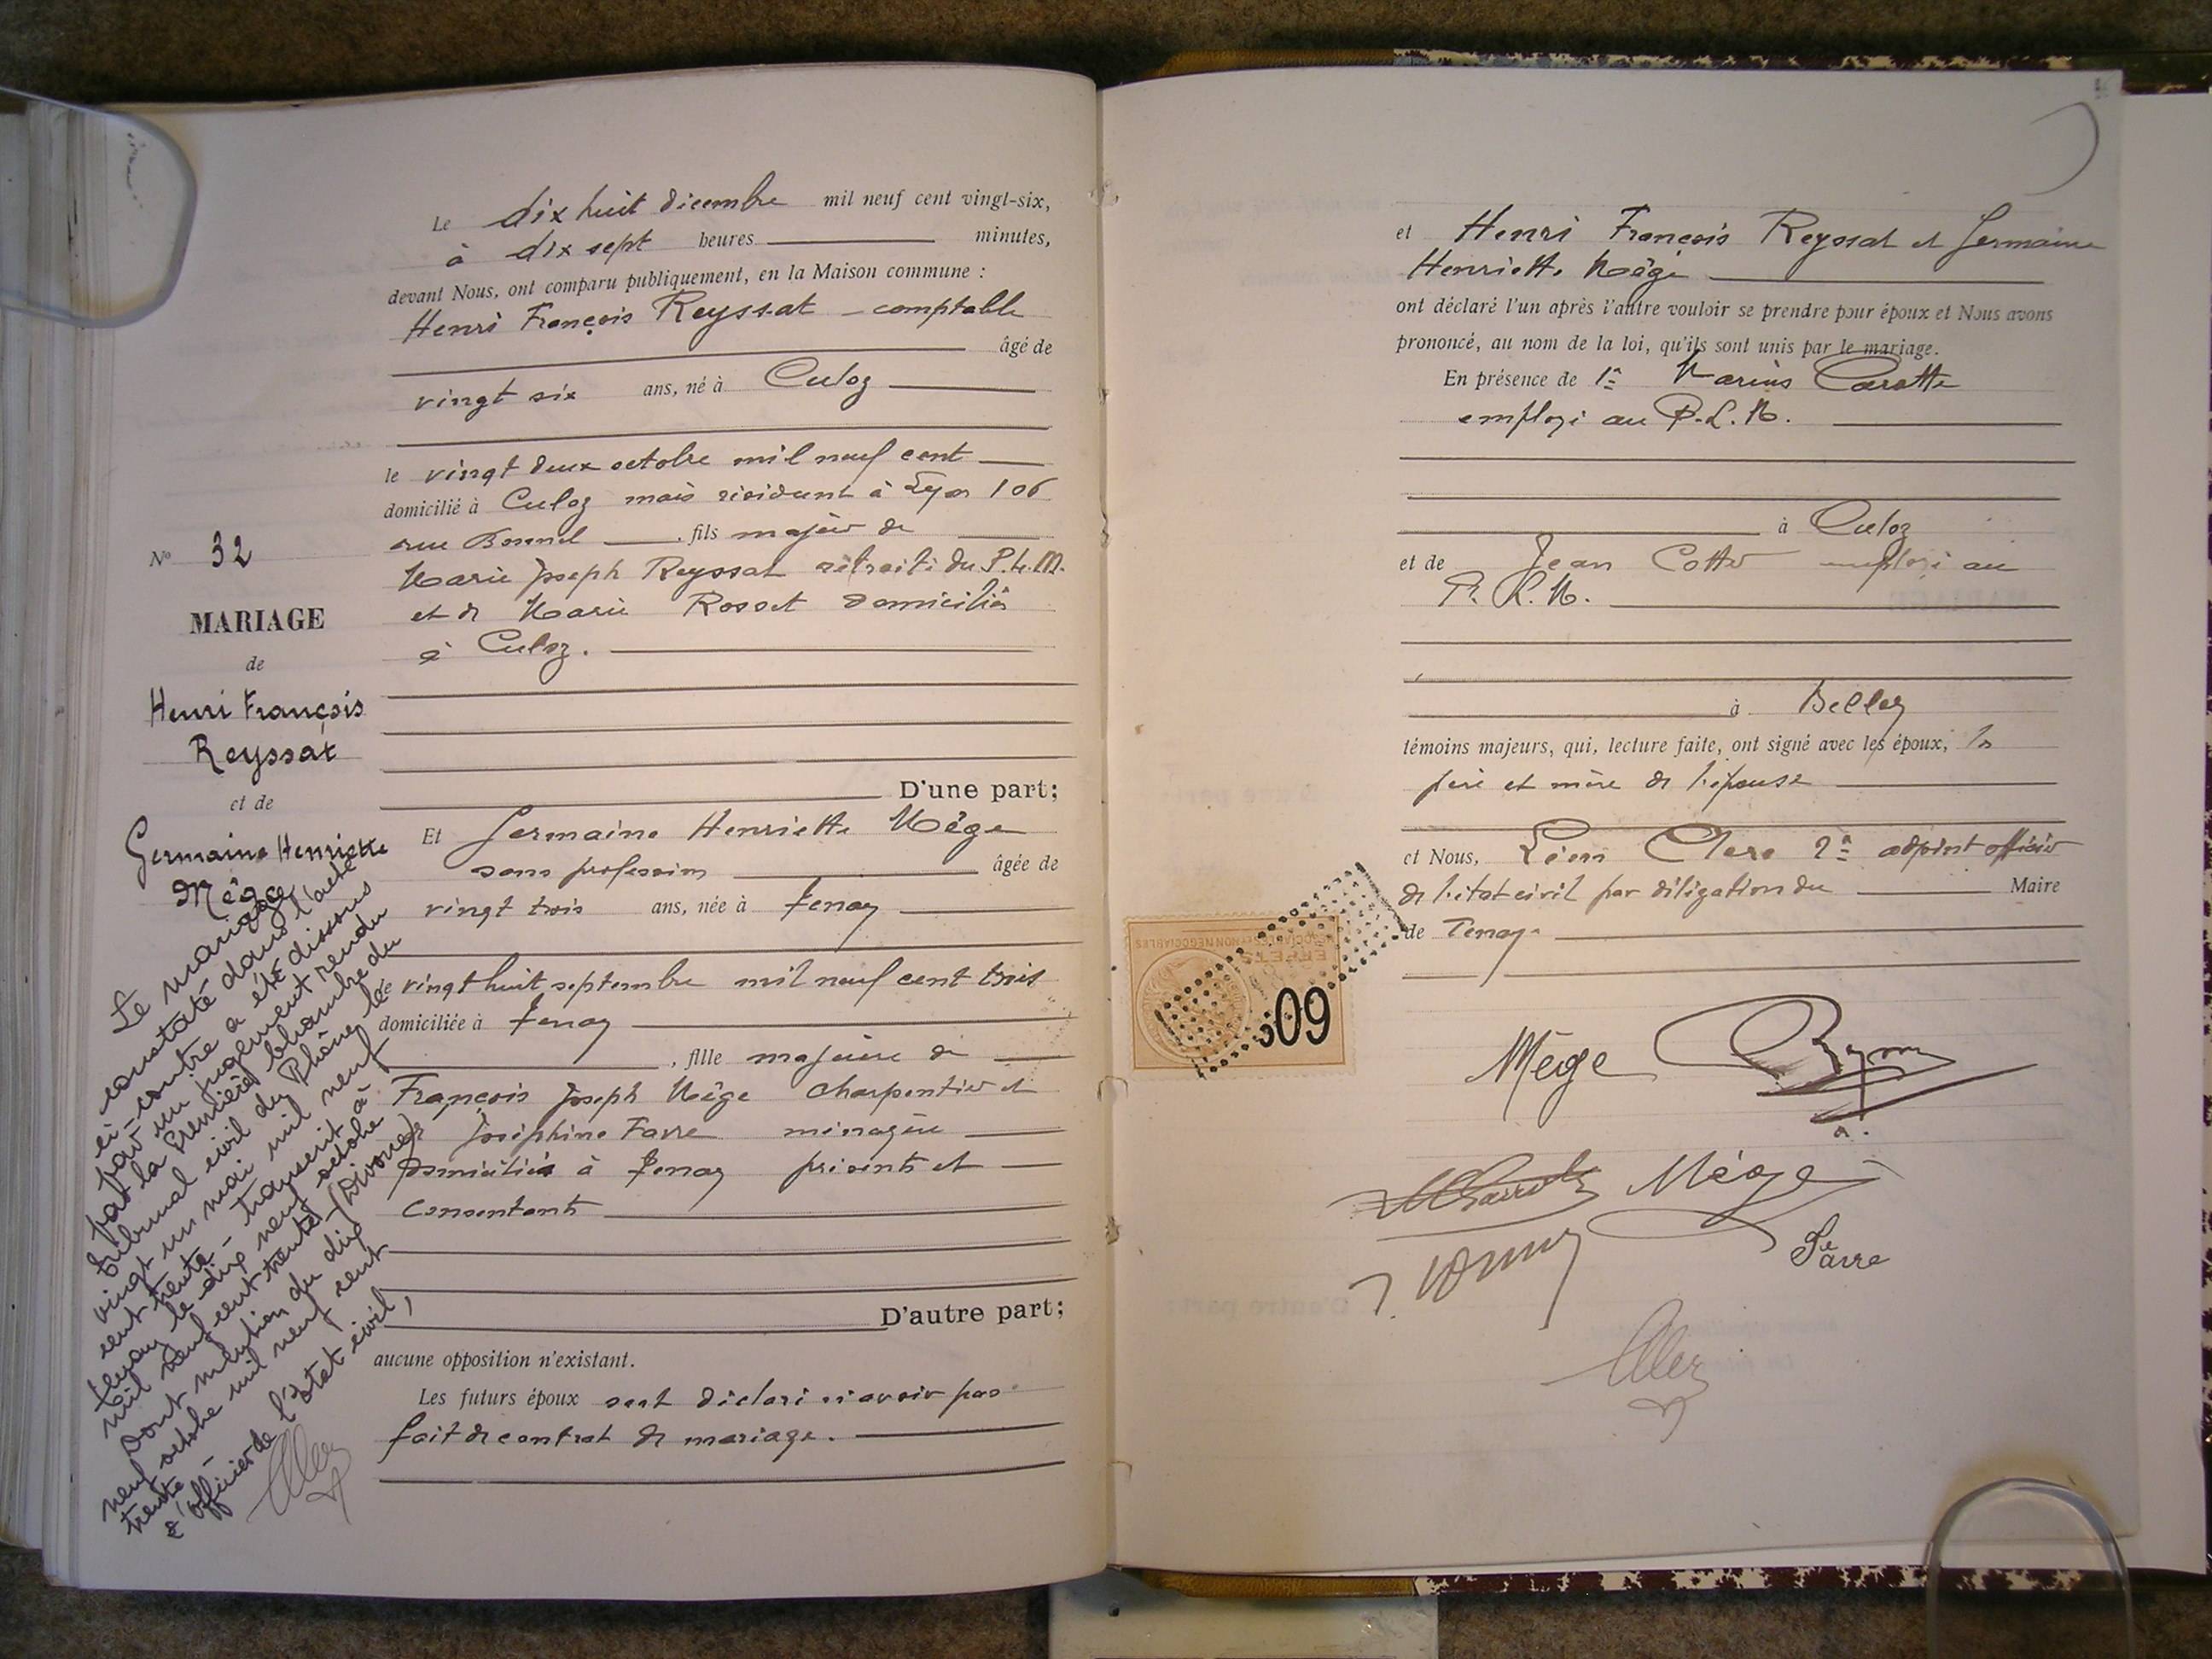 Le dix huit décembre mil neuf cent vingt-six,
à dix sept heures minutes,
devant Nous, ont comparu publiquement, en la Maison commune :
Henri François Reyssat - comptable
âgé de
vingt six ans, né à Culoz
le vingt deux octobre mil neuf cent
domicilié à Culoz mais résidant à Lyon 106
rue Bonnel , fils majeur de
Marie Joseph Reyssat retraité du P.L.M.
et de Marie Rosset domiciliés
à Culoz.
D'une part;
Et Germaine Henriette Mège
sans profession âgée de
vingt trois ans, née à Tenay
le vingt huit septembre mil neuf cent trois
domiciliée à Tenay
, fille majeure de
François Joseph Mège charpentier et
de Joséphine Favre ménagère
domiciliés à Tenay présents et
consentants
D'autre part;
aucune opposition n'existant.
Les futurs époux ont déclaré n'avoir pas
fait de contrat de mariage.
N° 32
MARIAGE
de
Henri François
Reyssat
et de
Germaine Henriette
Mège
Le mariage
constaté dans l'acte
ci-contre a été dissous
par un jugement rendu
par la Première chambre du
Tribunal civil du Rhône, le
vingt un mai mil neuf
cent trente - transcrit à
Tenay le dix neuf octobre
mil neuf cent trente (Divorce)
Dont mention du dix
neuf octobre mil neuf cent
trente -
L'officier de l'état civil,
et Henri François Reyssat et Germaine
Henriette Mège
ont déclaré l'un après l'autre vouloir se prendre pour époux et Nous avons
prononcé, au nom de la loi, qu'ils sont unis par le mariage.
En présence de 1° Marius Carotte
employé au P.L.M.
à Culoz
et de Jean Cotter employé au
P.L.M.
à Belley
témoins majeurs, qui, lecture faite, ont signé avec les époux, les
père et mère de l'épouse
et Nous, Léon Clerc 2° adjoint officier
de l'état civil par délégation du Maire
de Tenay
09
Mège
Mège
Favre